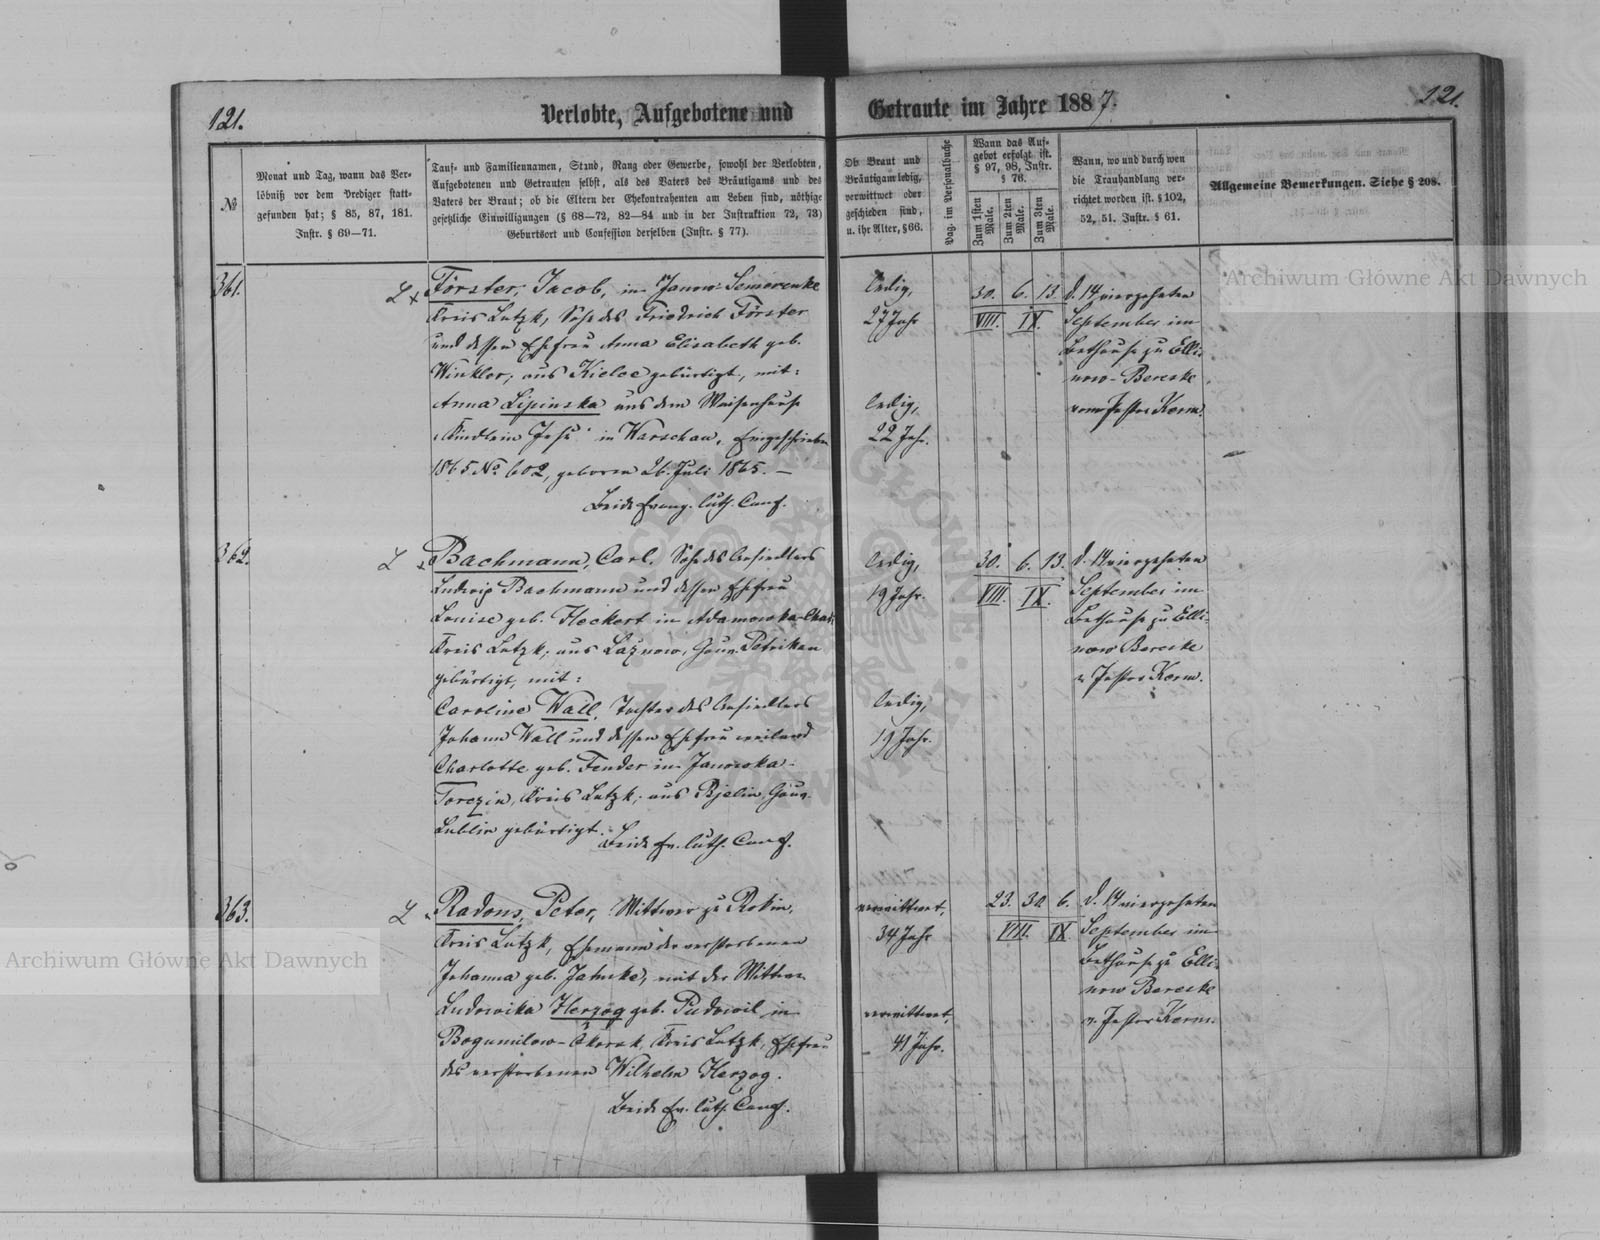 121.
Verlobte, Aufgebotene und
Getraute im Jahre 1887.
121.
№
Monat und Tag, wann das Ver-
löbniß vor dem Prediger statt-
gefunden hat; § 85, 87, 181.
Instr. § 69—71.
Tauf- und Familiennamen, Stand, Rang oder Gewerbe, sowohl der Verlobten,
Aufgebotenen und Getrauten selbst, als des Vaters des Bräutigams und des
Vaters der Braut; ob die Eltern der Ehekontrahenten am Leben sind, nöthige
gesetzliche Einwilligungen (§ 68—72, 82—84 und in der Instruktion 72, 73)
Geburtsort und Confession derselben (Instr. § 77).
Ob Braut und
Bräutigam ledig,
verwittwet oder
geschieden sind,
u. ihr Alter, § 66.
Pag. im Personalbuche
Wann das Auf-
gebot erfolgt ist.
§ 97, 98, Instr.
§ 76.
Zum 1sten Male.
Zum 2ten Male.
Zum 3ten Male.
Wann, wo und durch wen
die Trauhandlung ver-
richtet worden ist. § 102,
52, 51. Instr. § 61.
Allgemeine Bemerkungen. Siehe § 208.
361.
L x Förster, Jacob, in Janow-Semerenke
Kreis Lutzk, Sohn des Friedrich Förster
und dessen Ehefrau Anna Elisabeth geb.
Winkler; aus Kielce gebürtigt, mit:
Anna Lipinska aus dem Waisenhause
"Kindlein Jesu" in Warschau, Eingeschrieben
1865 No 602, geboren 26. Juli 1865. —
Beide Evang. luth. Conf.
ledig,
27 Jahr
ledig,
22 Jahr.
30. 6. 13.
VIII. IX.
d. 14 vierzehnten
September im
Bethause zu Elli-
now-Bereske
vom Pastor Kerm.
362.
L x Bachmann, Carl, Sohn des Ansiedlers
Ludwig Bachmann und dessen Ehefrau
Louise geb. Heckert in Adamowka-
Kreis Lutzk; aus Łaznow, Gouv. Petrikau
gebürtigt, mit:
Caroline Wall, Tochter des Ansiedlers
Johann Wall und dessen Ehefrau weiland
Charlotte geb. Fender in Janowka-
Torczin, Kreis Lutzk; aus Gouv.
Lublin gebürtigt.
Beide Ev. luth. Conf.
ledig,
19 Jahr.
ledig,
19 Jahr.
30. 6. 13.
VIII. IX.
d. 14 vierzehnten
September im
Bethause zu Elli-
now Bereske
v. Pastor Kerm.
363.
L Radons, Peter, Wittwer zu Rokin,
Kreis Lutzk, Ehemann der verstorbenen
Johanna geb. Jahnke, mit der Wittwe
Ludowika Herzog geb. Pudwil in
Bogumilow- Kreis Lutzk, Ehefrau
des verstorbenen Wilhelm Herzog.
Beide Ev. luth. Conf.
verwittwet,
34 Jahr
verwittwet,
41 Jahr.
23. 30. 6.
VIII. IX.
d. 14 vierzehnten
September im
Bethause zu Elli-
now Bereske
v. Pastor Kerm.
Archiwum Główne Akt Dawnych
Archiwum Główne Akt Dawnych